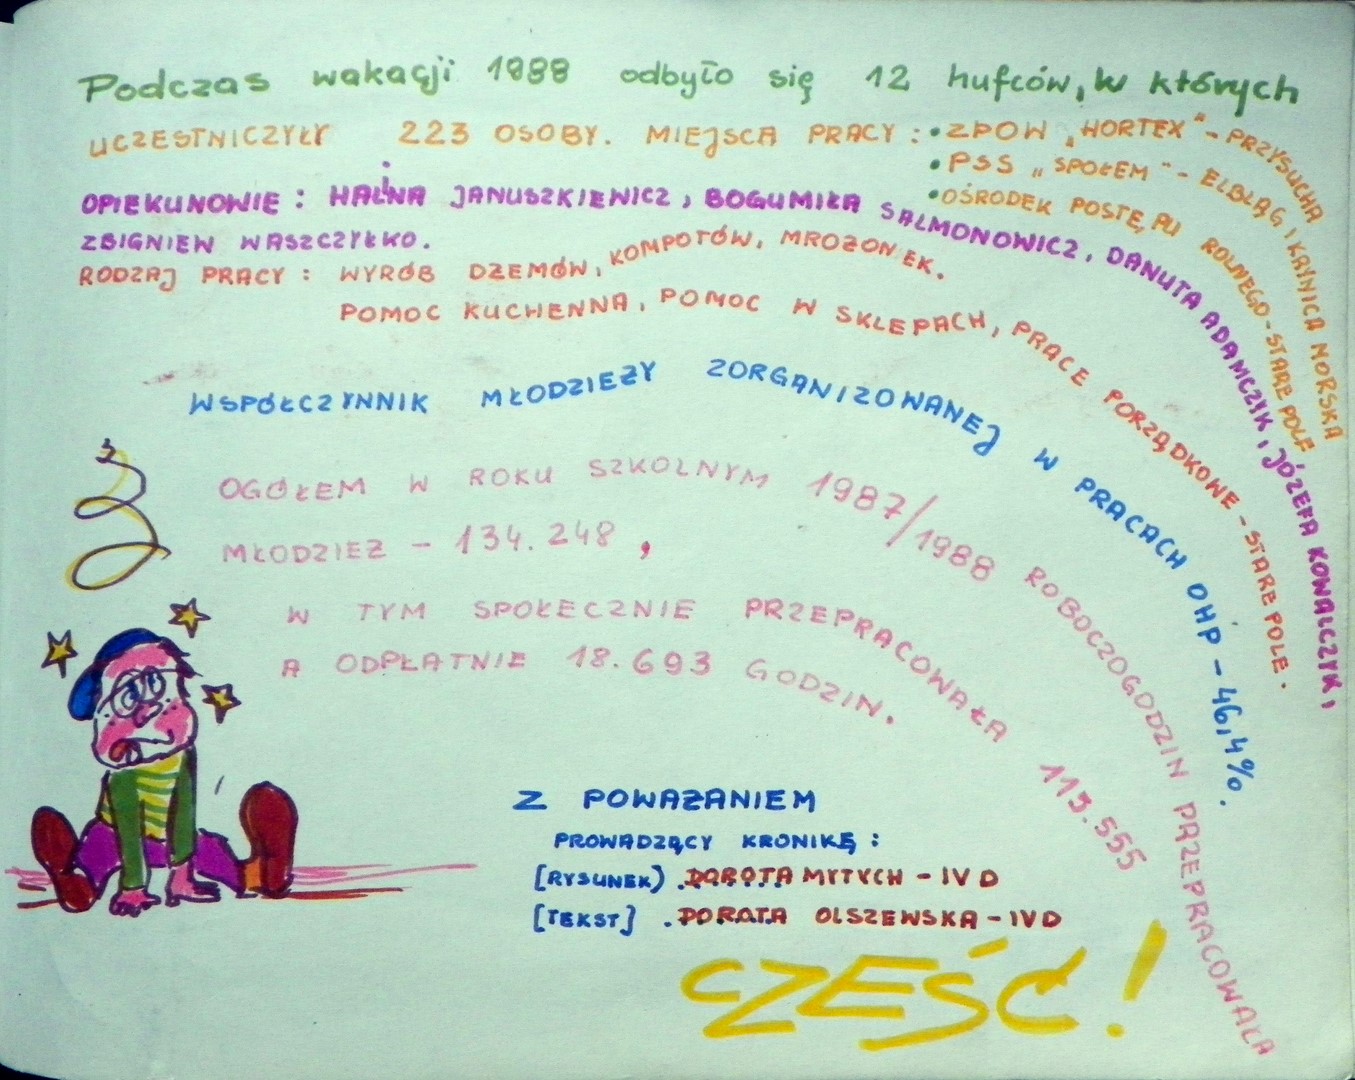 Podczas wakacji 1988 odbyło się 12 hufców, w których
UCZESTNICZYŁY 223 OSOBY. MIEJSCA PRACY : • ZPOW „HORTEX" - PRZYSUCHA
• PSS „SPOŁEM" - ELBLĄG I KRYNICA MORSKA
• OŚRODEK POSTĘPU ROLNEGO - STARE POLE
OPIEKUNOWIE : HALINA JANUSZKIEWICZ, BOGUMIŁA SALMONOWICZ, DANUTA ADAMCZYK, JÓZEFA KOWALCZYK,
ZBIGNIEW WASZCZYŁKO.
RODZAJ PRACY : WYRÓB DZEMÓW, KOMPOTÓW, MROZONEK.
POMOC KUCHENNA, POMOC W SKLEPACH, PRACE PORZĄDKOWE - STARE POLE.
WSPÓŁCZYNNIK MŁODZIEZY ZORGANIZOWANEJ W PRACACH OHP - 46,4%.
OGÓŁEM W ROKU SZKOLNYM 1987/1988 ROBOCZOGODZIN PRZEPRACOWAŁA
MŁODZIEŻ - 134.248,
W TYM SPOŁECZNIE PRZEPRACOWAŁA 113.555
A ODPŁATNIE 18.693 GODZIN.
Z POWAŻANIEM
PROWADZĄCY KRONIKĘ :
[RYSUNEK) . DOROTA MYTYCH - IV D
[TEKST] . DOROTA OLSZEWSKA - IV D
CZEŚĆ!